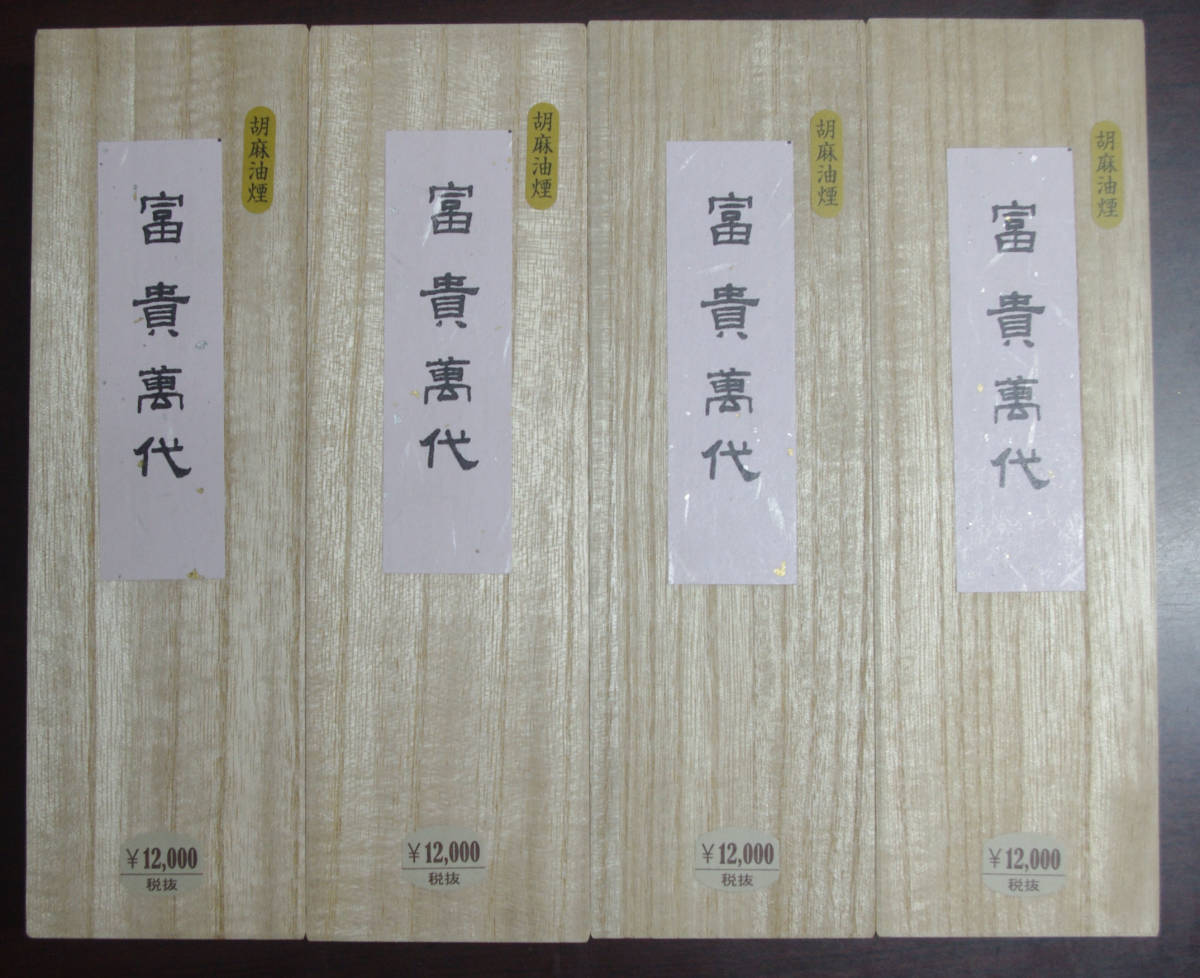 胡麻油煙
富貴萬代
¥12,000
税抜
胡麻油煙
富貴萬代
¥12,000
税抜
胡麻油煙
富貴萬代
¥12,000
税抜
胡麻油煙
富貴萬代
¥12,000
税抜